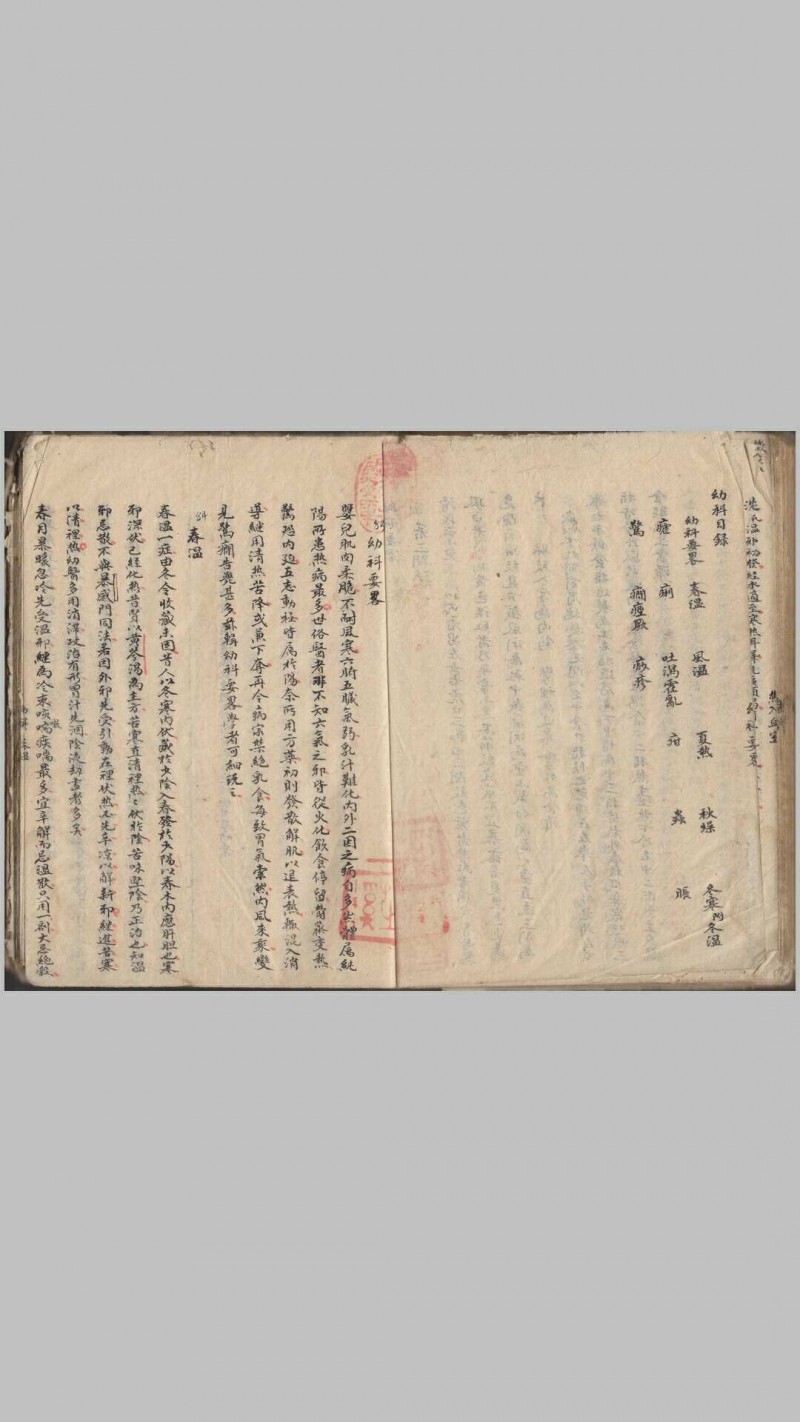 幼科目錄
幼科要畧 春溫 風溫 夏熱 秋燥 冬寒附冬溫
瘧 痢 吐瀉霍亂 疳 蟲 脹
驚 癇痙厥 痧疹
幼科要畧
嬰兒肌肉柔脆不耐風寒六腑五臟氣弱乳汁難化內外二因之病自多然體属純
陽所患热病最多世俗醫者不知六氣之邪皆從火化飲食停留鬱蒸变热
驚恐內迫五志動極皆属於陽奈所用方藥初則發散解肌以退表热槪混入消
導継用清热苦降或兼下奪再令病家禁絕乳食每致胃氣索然內風來乘變
見驚癇告斃甚多茲輯幼科要畧學者可細玩之
春溫
春溫一症由冬令收藏未固昔人以冬寒內伏藏於少陰入春發於少陽以春木內應肝胆也寒
邪深伏已經化热昔賢以黃芩湯為主方苦寒直清裡热热伏於陰苦味堅陰乃正治也知溫
邪忌散不與暴感門同法若因外邪先受引動在裡伏热必先辛凉以解新邪継進苦寒
以清裡热幼醫多用消滞攻治有形胃汁先涸陰液劫盡者多矣
春月暴暖忽冷先受溫邪継為冷束咳嗽痰喘最多宜辛解而忌溫散只用一剤大忌絕穀